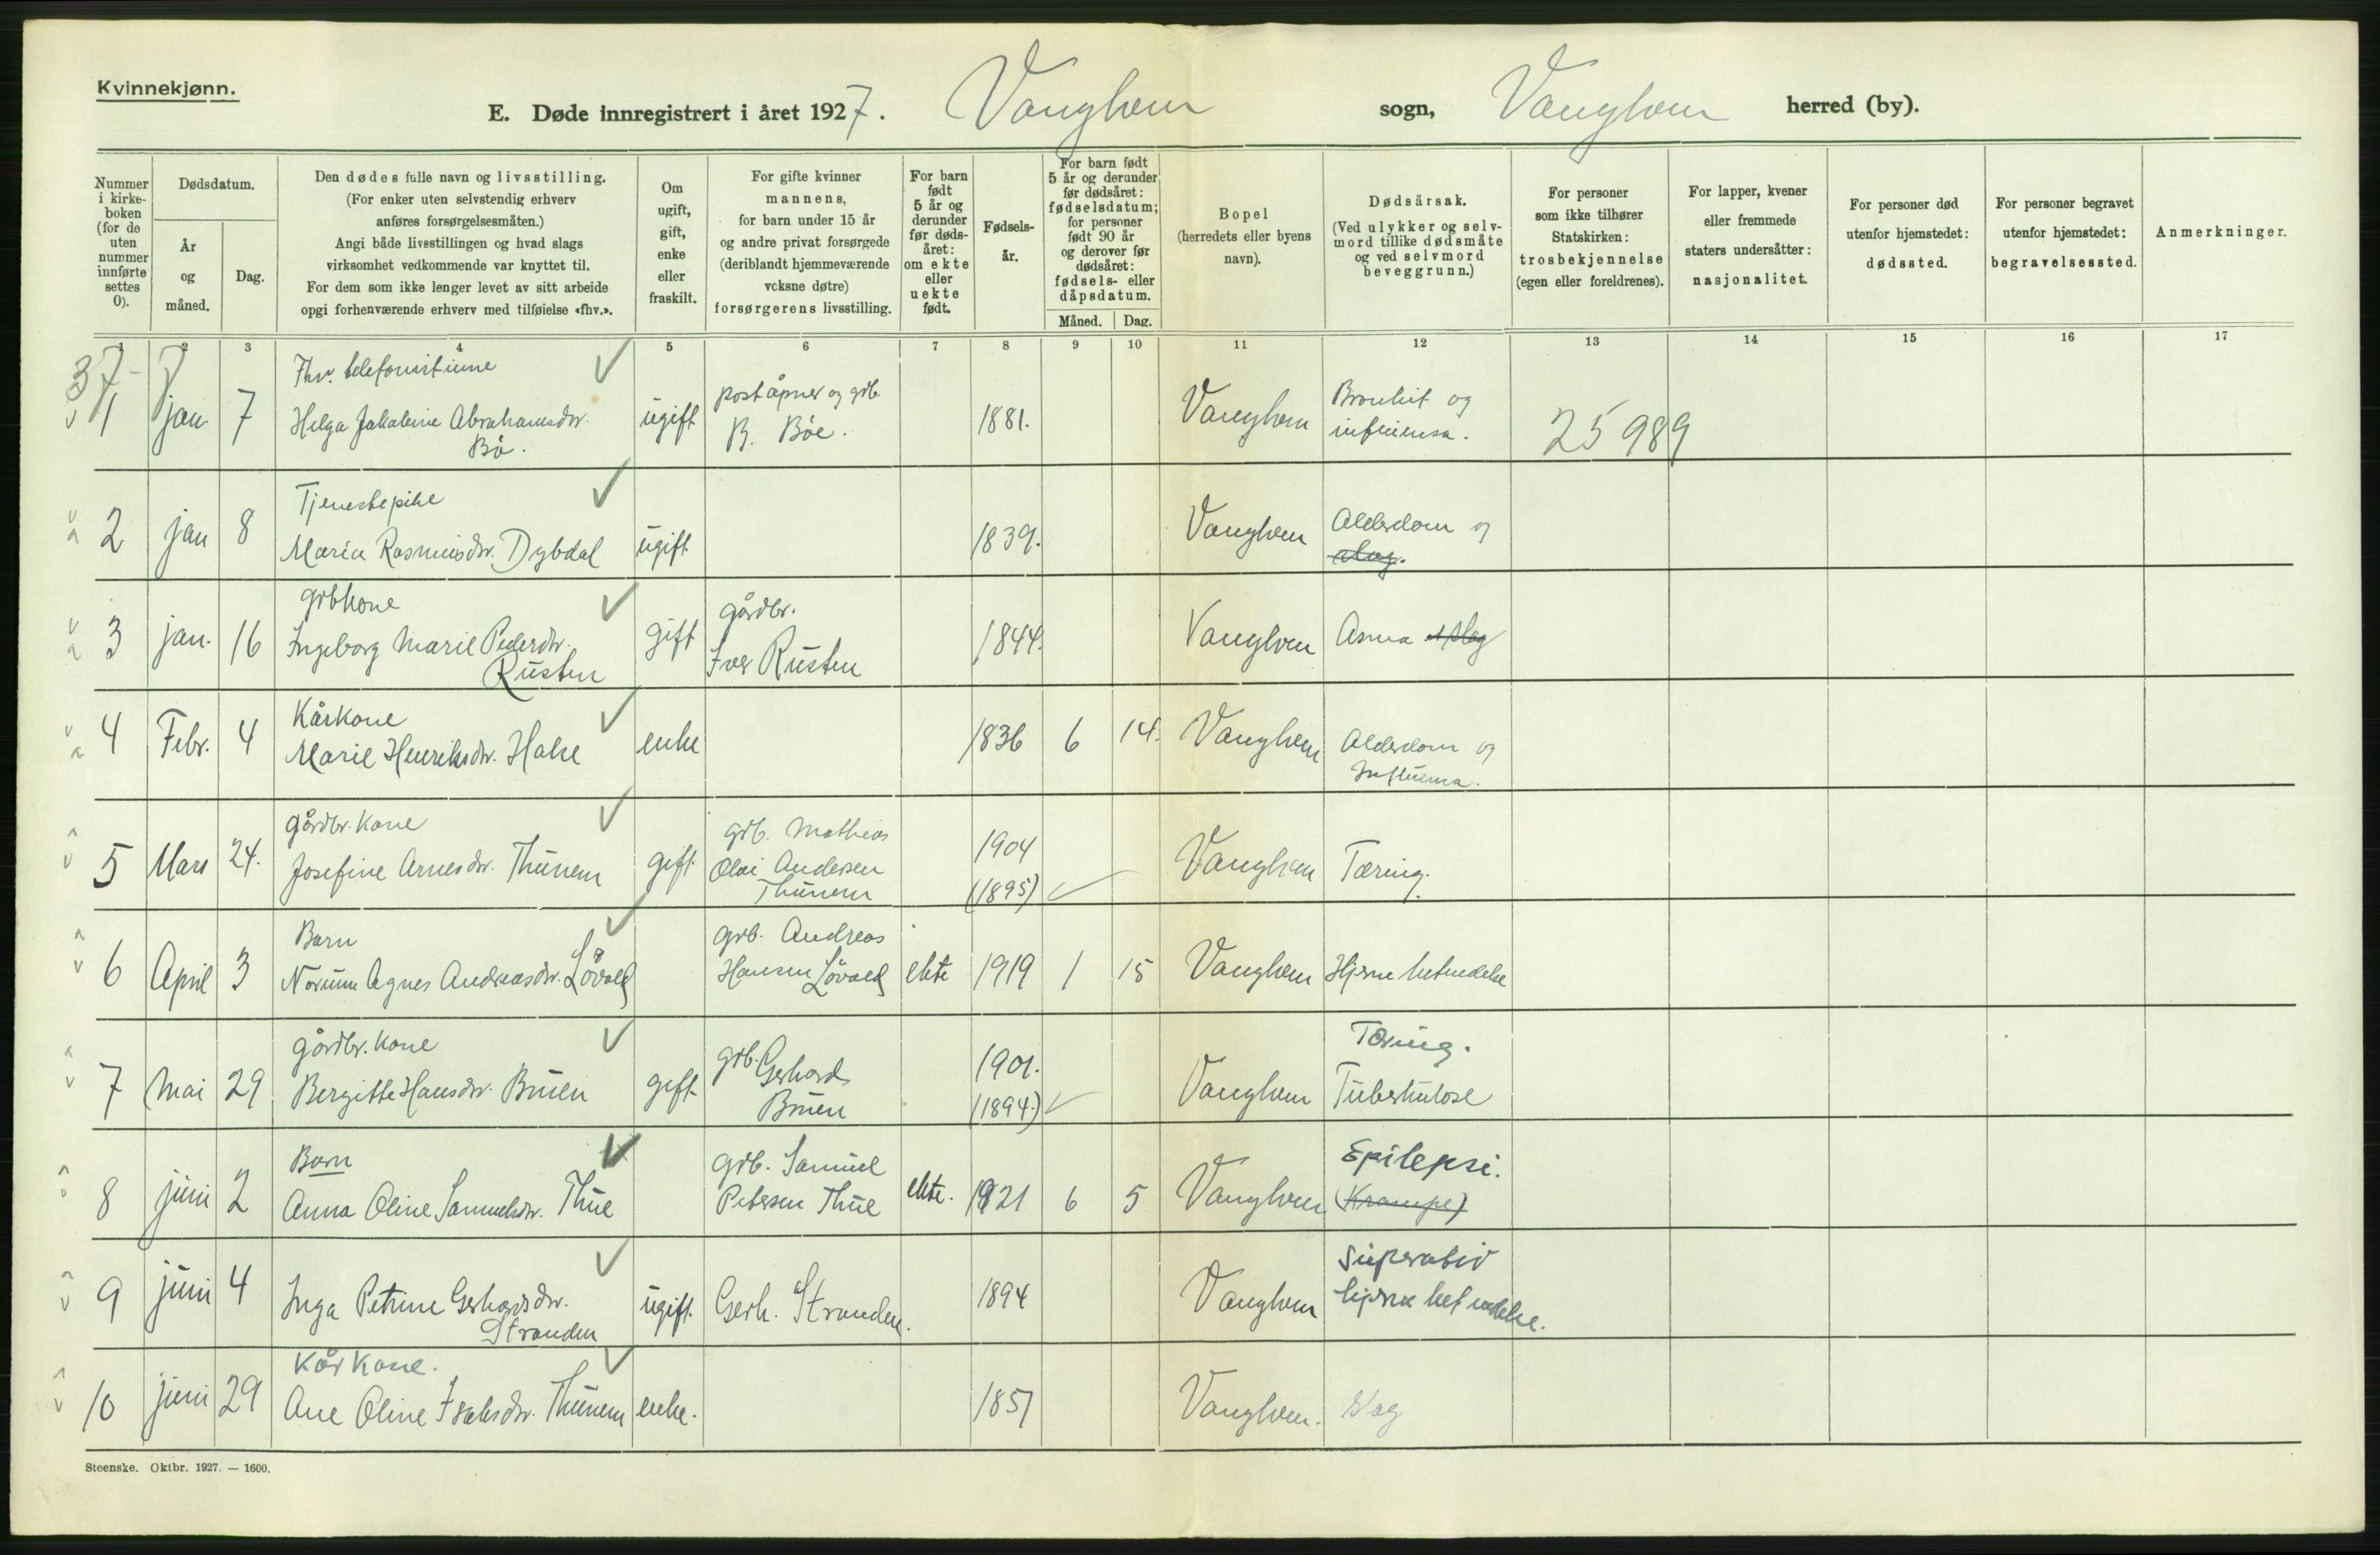 Kvinnekjønn.
E. Døde innregistrert i året 1927. Vanylven sogn, Vanylven herred (by).
Nummer i kirke- boken (for de uten nummer innførte settes 0).
Dødsdatum.
År og måned.
Dag.
Den dødes fulle navn og livsstilling.
(For enker uten selvstendig erhverv
anføres forsørgelsesmåten.)
Angi både livsstillingen og hvad slags
virksomhet vedkommende var knyttet til.
For dem som ikke lenger levet av sitt arbeide
opgi forhenværende erhverv med tilføielse «fhv.».
Om ugift, gift, enke eller fraskilt.
For gifte kvinner
mannens,
for barn under 15 år
og andre privat forsørgede
(deriblandt hjemmeværende
voksne døtre)
forsørgerens livsstilling.
For barn født 5 år og derunder før døds- året: om ekte eller uekte født.
Fødsels- år.
For barn født
5 år og derunder
før dødsåret:
fødselsdatum;
for personer
født 90 år
og derover før
dødsåret:
fødsels- eller
dåpsdatum.
Måned. Dag.
Bopel
(herredets eller byens
navn).
Dødsårsak.
(Ved ulykker og selv-
mord tillike dødsmåte
og ved selvmord
beveggrunn.)
For personer
som ikke tilhører
Statskirken:
trosbekjennelse
(egen eller foreldrenes).
For lapper, kvener
eller fremmede
staters undersåtter:
nasjonalitet.
For personer død
utenfor hjemstedet:
dødssted.
For personer begravet
utenfor hjemstedet:
begravelsessted.
Anmerkninger.
1 2 3 4 5 6 7 8 9 10 11 12 13 14 15 16 17
37 7
Fhv. telefonistinne
1 jan. 7 Helga Jakobine Abrahamsdtr. Bö. ugift poståpner og grb. B. Böe. 1881. Vanylven Bronkit og influensa. 25989
Tjenestepike
2 jan 8 Maria Rasmusdtr. Dybdal ugift 1839. Vanylven Alderdom og slag.
grbkone
3 jan. 16 Ingeborg Marie Pedersdtr. Rusten gift gårdbr. Iver Rusten 1844. Vanylven Asma slag
Kårkone
4 Febr. 4 Marie Henriksdtr. Hake enke 1836 6 14. Vanylven Alderdom og Influensa.
gårdbr. kone
5 Mars 24. Josefine Arnesdtr. Thunem gift grb. Mathias Olai Andersen Thunem 1904 (1895) Vanylven Tæring.
Barn
6 April 3 Agnes Andreasdtr. Løvold grb. Andreas Hansen Løvold ekte 1919 1 15 Vanylven Hjerne betendelse
gårdbr. kone
7 Mai 29 Bergitte Hansdtr. Bruen gift grb. Gerhard Bruen 1901. (1894.) Vanylven Tæring. Tuberkulose
Barn
8 juni 2 Anna Oline Samuelsdtr. Thue grb. Samuel Petersen Thue ekte. 1921 6 5 Vanylven Epilepsi. (Krampe)
9 juni 4 Inga Petrine Gerhardsdtr. Stranden ugift. Gerh. Stranden. 1894 Vanylven Superativ hjerne betendelse.
Kårkone.
10 juni 29 Ane Oline Isaksdtr. Thunem enke. 1851 Vanylven. Slag
Steenske. Oktbr. 1927. — 1600.